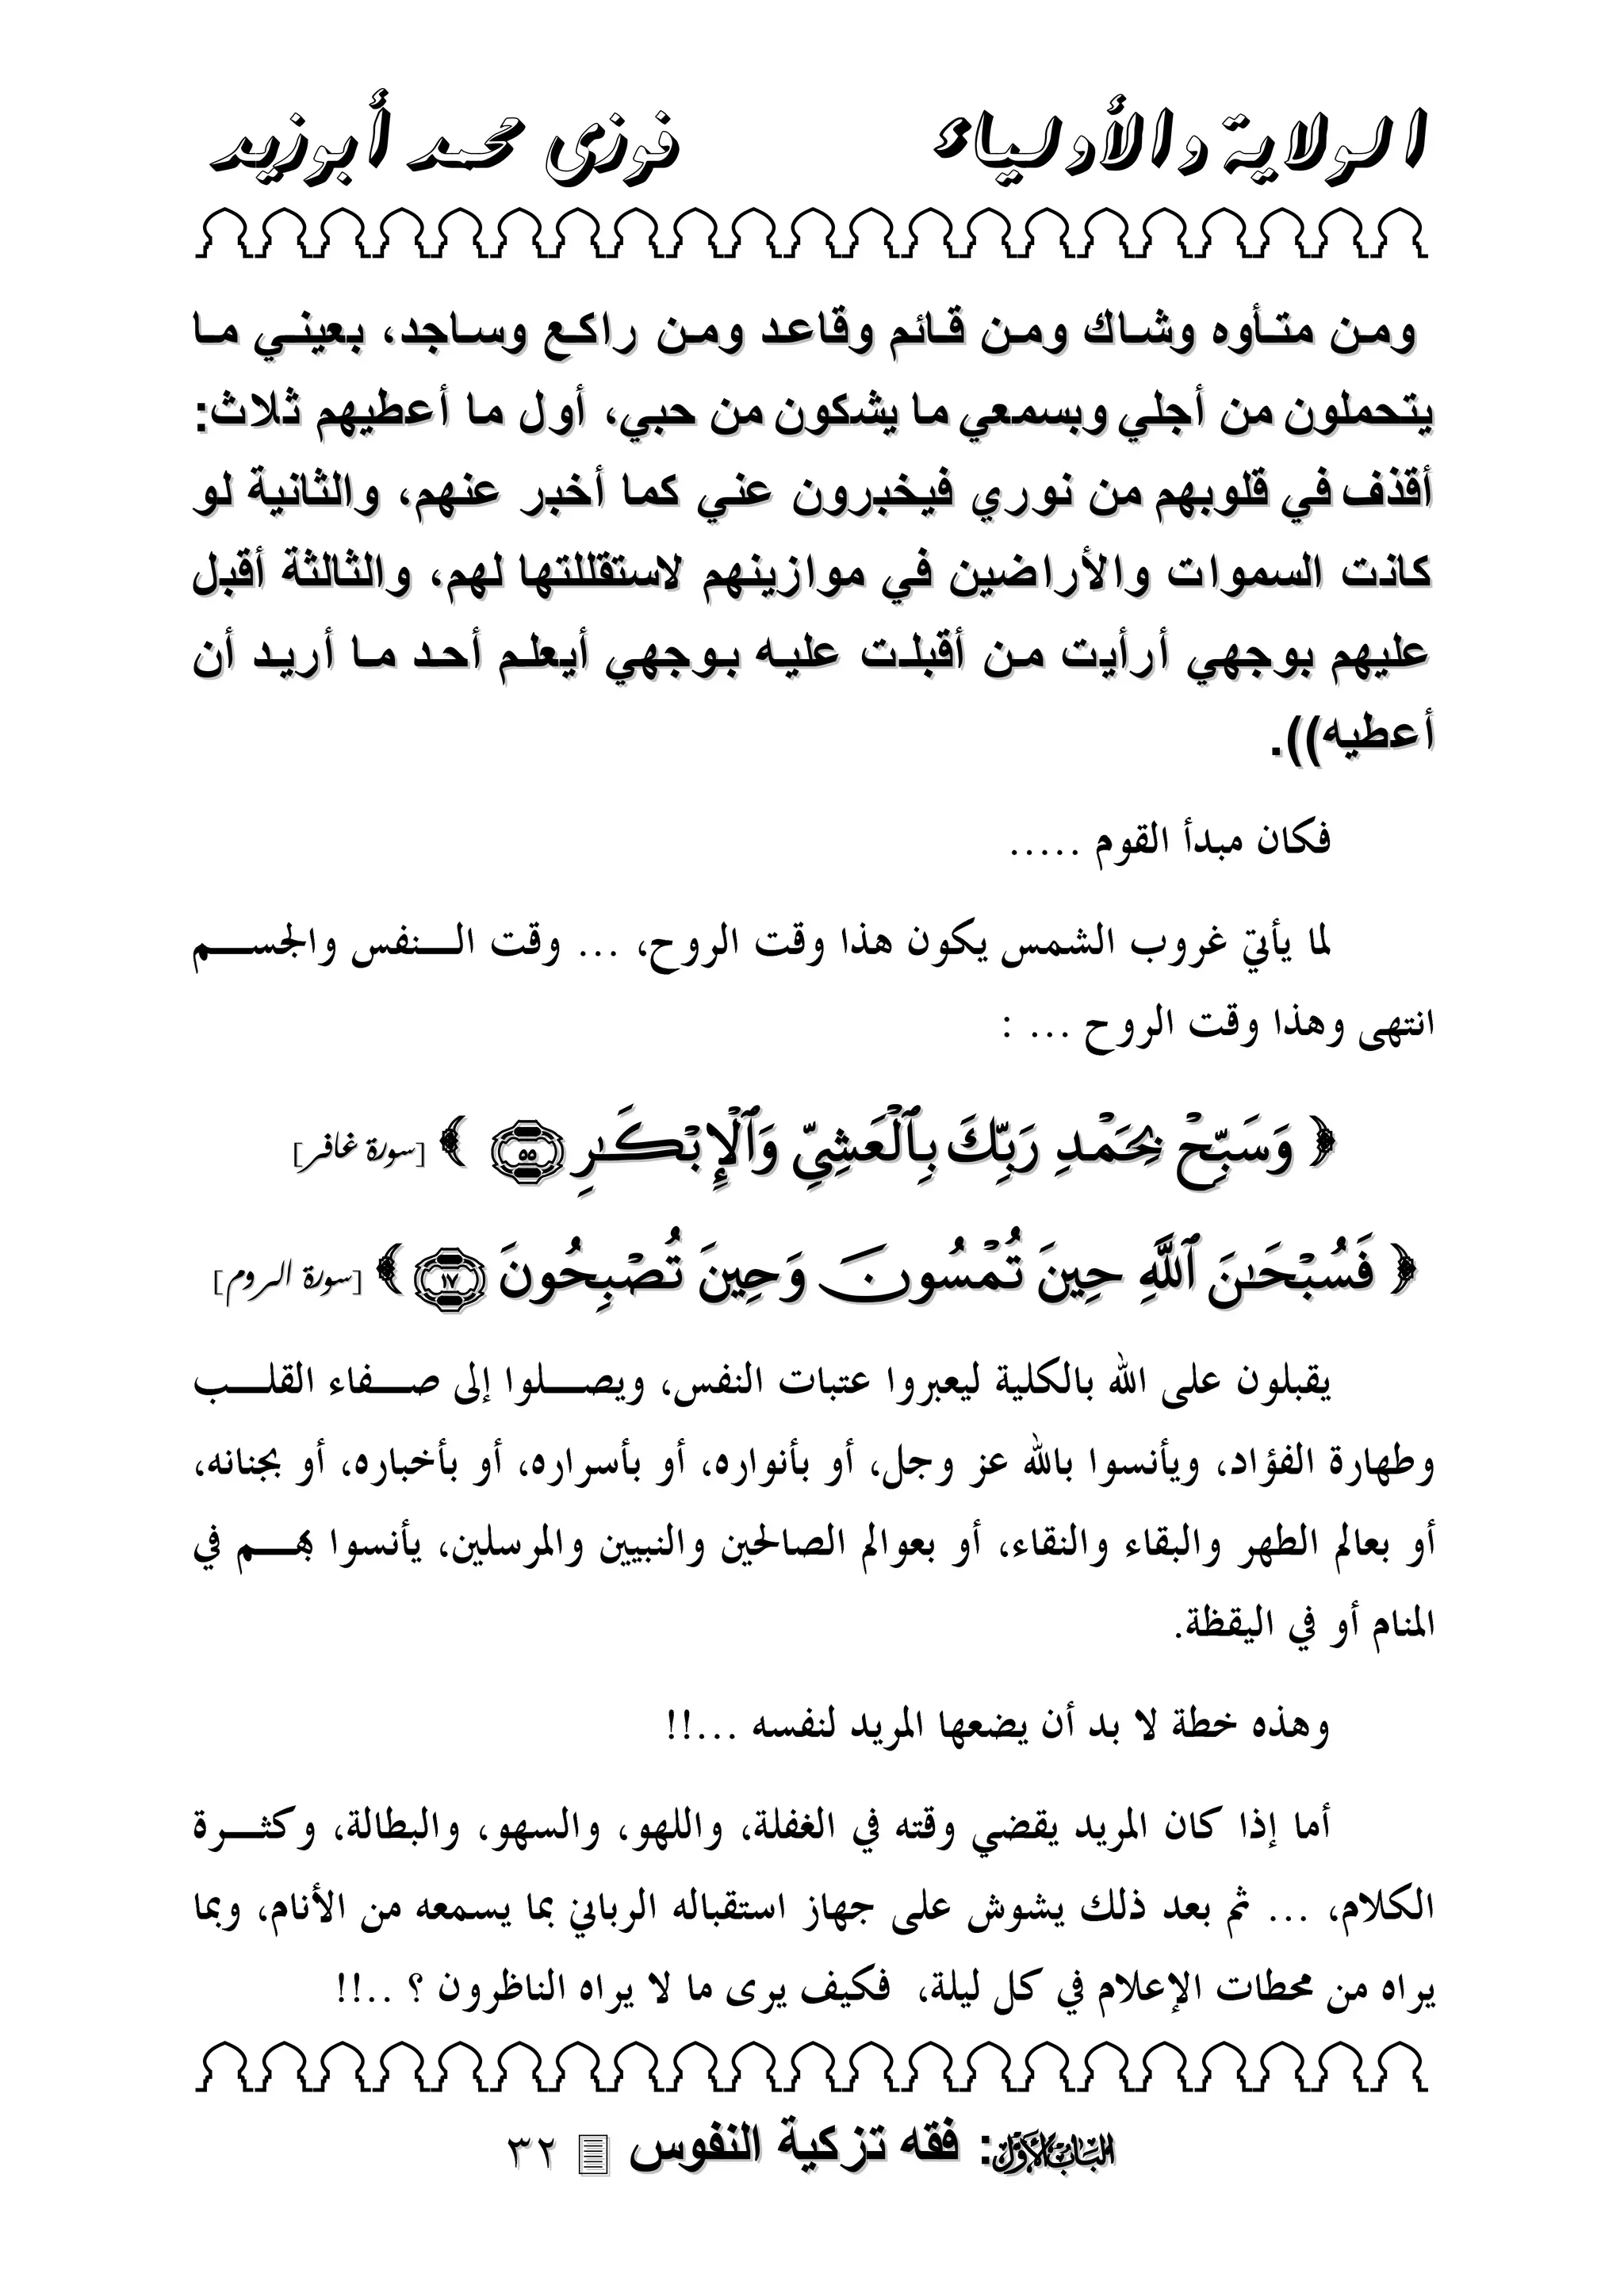 الولاية والأولياء فوزى محمد أبوزيد
ومن متأوه وشاك ومن قائم وقاعد ومن راكع وساجد، بعيني ما
يتحملون من أجلي وبسمعي ما يشكون من حبي، أول ما أعطيهم ثلاث:
أقذف في قلوبهم من نوري فيخبرون عني كما أخبر عنهم، والثانية لو
كانت السموات والأراضين في موازينهم لاستقللتها لهم، والثالثة أقبل
عليهم بوجهي أرأيت من أقبلت عليه بوجهي أيعلم أحد ما أريد أن
أعطيه)).
فكان مبدأ القوم .....
لما يأتي غروب الشمس يكون هذا وقت الروح، ... وقت النفس والجسم
انتهى وهذا وقت الروح ... :
﴿ وَسَبِّحْ بِحَمْدِ رَبِّكَ بِٱلْعَشِيِّ وَٱلْإِبْكَـٰرِ ٥٥ ﴾ [سورة غافر]
﴿ فَسُبْحَـٰنَ ٱللَّهِ حِينَ تُمْسُونَ وَحِينَ تُصْبِحُونَ ١٧ ﴾ [سورة الروم]
يقبلون على الله بالكلية ليعبروا عتبات النفس، ويصلوا إلى صفاء القلب
وطهارة الفؤاد، ويأنسوا بالله عز وجل، أو بأنواره، أو بأسراره، أو بأخباره، أو بجنانه،
أو بعالم الطهر والبقاء والنقاء، أو بعوالم الصالحين والنبيين والمرسلين، يأنسوا بهم في
المنام أو في اليقظة.
وهذه خطة لا بد أن يضعها المريد لنفسه ...!!
أما إذا كان المريد يقضي وقته في الغفلة، واللهو، والسهو، والبطالة، وكثرة
الكلام، ... ثم بعد ذلك يشوش على جهاز استقباله الرباني بما يسمعه من الأنام، وبما
يراه من محطات الإعلام في كل ليلة، فكيف يرى ما لا يراه الناظرون ؟ ..!!
الباب الأول: فقه تزكية النفوس ٣٢